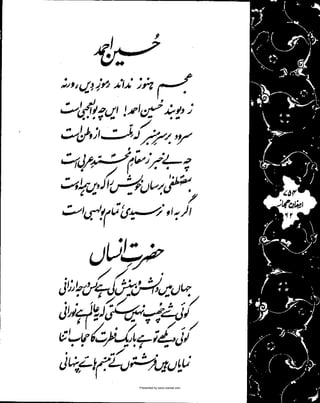 حسین احمد
عجم ہنوز نداند رموزِ دیں، ورنہ
ز دیوبند حسین احمد! ایں چہ بوالعجبی است
سرود بر سرِ منبر کہ ملّت از وطن است
چہ بے خبر ز مقامِ محمدِؐ عربی است
بمصطفیٰؐ برساں خویش را کہ دیں ہمہ اوست
اگر بہ او نرسیدی، تمام بولہبی است
حضرتِ انسان
جہاں میں دانش و بینش کی ہے کس درجہ ارزانی
کوئی شے چھپ نہیں سکتی کہ یہ عالم ہے نورانی
کوئی دیکھے تو ہے باریک فطرت کا حجاب اتنا
نمایاں ہیں فرشتوں کے تبسّم ہائے پنہانی
۷۵۴
ارمغانِ حجاز
۶۲